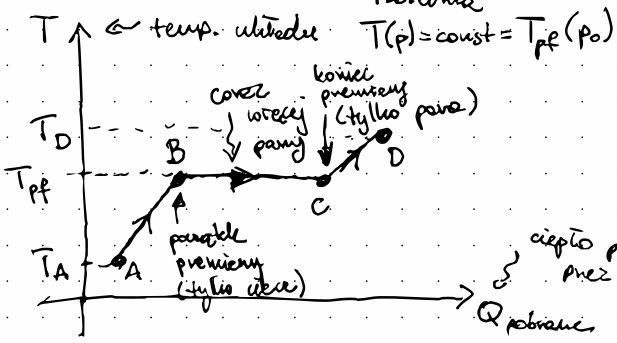 T
temp. układu
T(p) = const = T_pf (p_0)
coraz
więcej
pary
koniec
przemiany
(tylko para)
T_D
D
B
T_pf
C
początek
przemiany
(tylko ciecz)
T_A
A
ciepło p
przez
Q pobrane